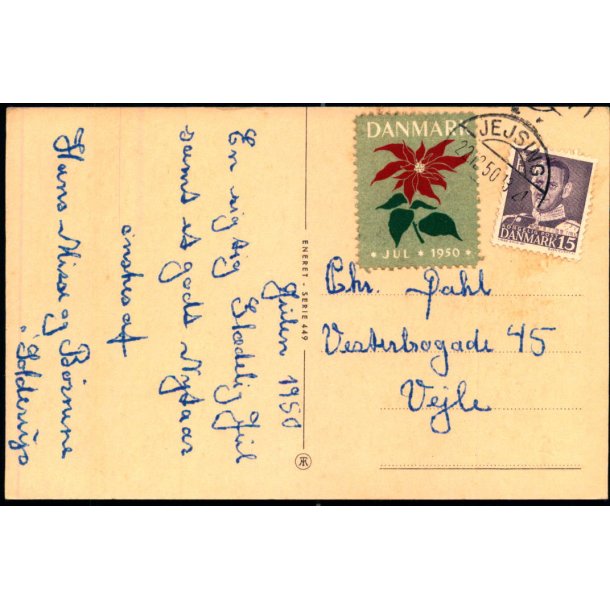 Julen 1950
En rigtig Glædelig Jul
samt et godt Nytaar
ønskes af
Hans Misse og Børnene
Solderup
ENERET - SERIE 449
DANMARK
JUL 1950
JEJSING
22.12.50
DANMARK 15
Chr. Dahl
Vesterbrogade 45
Vejle